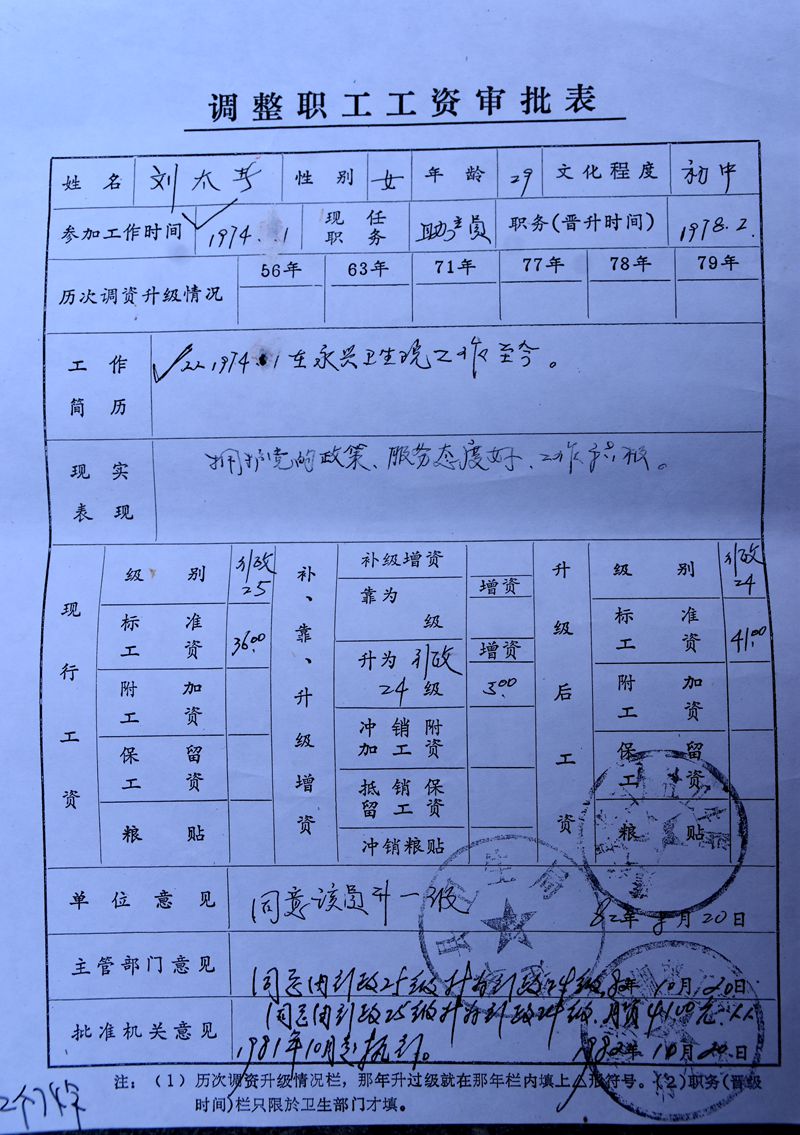 调整职工工资审批表
姓名 刘 性别 女 年龄 29 文化程度 初中
参加工作时间 1974.1 现任职务 助产员 职务(晋升时间) 1978.2.
历次调资升级情况 56年 63年 71年 77年 78年 79年
工作简历 1974.1在永兴卫生院工作至今。
现实表现 拥护党的政策、服务态度好、工作积极。
现行工资 补、靠、升级增资 升级后工资
级别 行政25 补级增资 级别 行政24
标准工资 36.00 靠为 级 增资 标准工资 41.00
附加工资 升为 行政24级 增资 5.00 附加工资
保留工资 冲销附加工资 保留工资
粮贴 抵销保留工资 粮贴
冲销粮贴
单位意见 同意该员升一级 82年 月20日
主管部门意见 同意由行政25级升为行政24级 82年10月20日
批准机关意见 同意由行政25级升为行政24级.月资41.00元.从
1981年10月起执行。 1982年10月20日
注：(1)历次调资升级情况栏，那年升过级就在那年栏内填上△形符号。(2)职务(晋级
时间)栏只限於卫生部门才填。